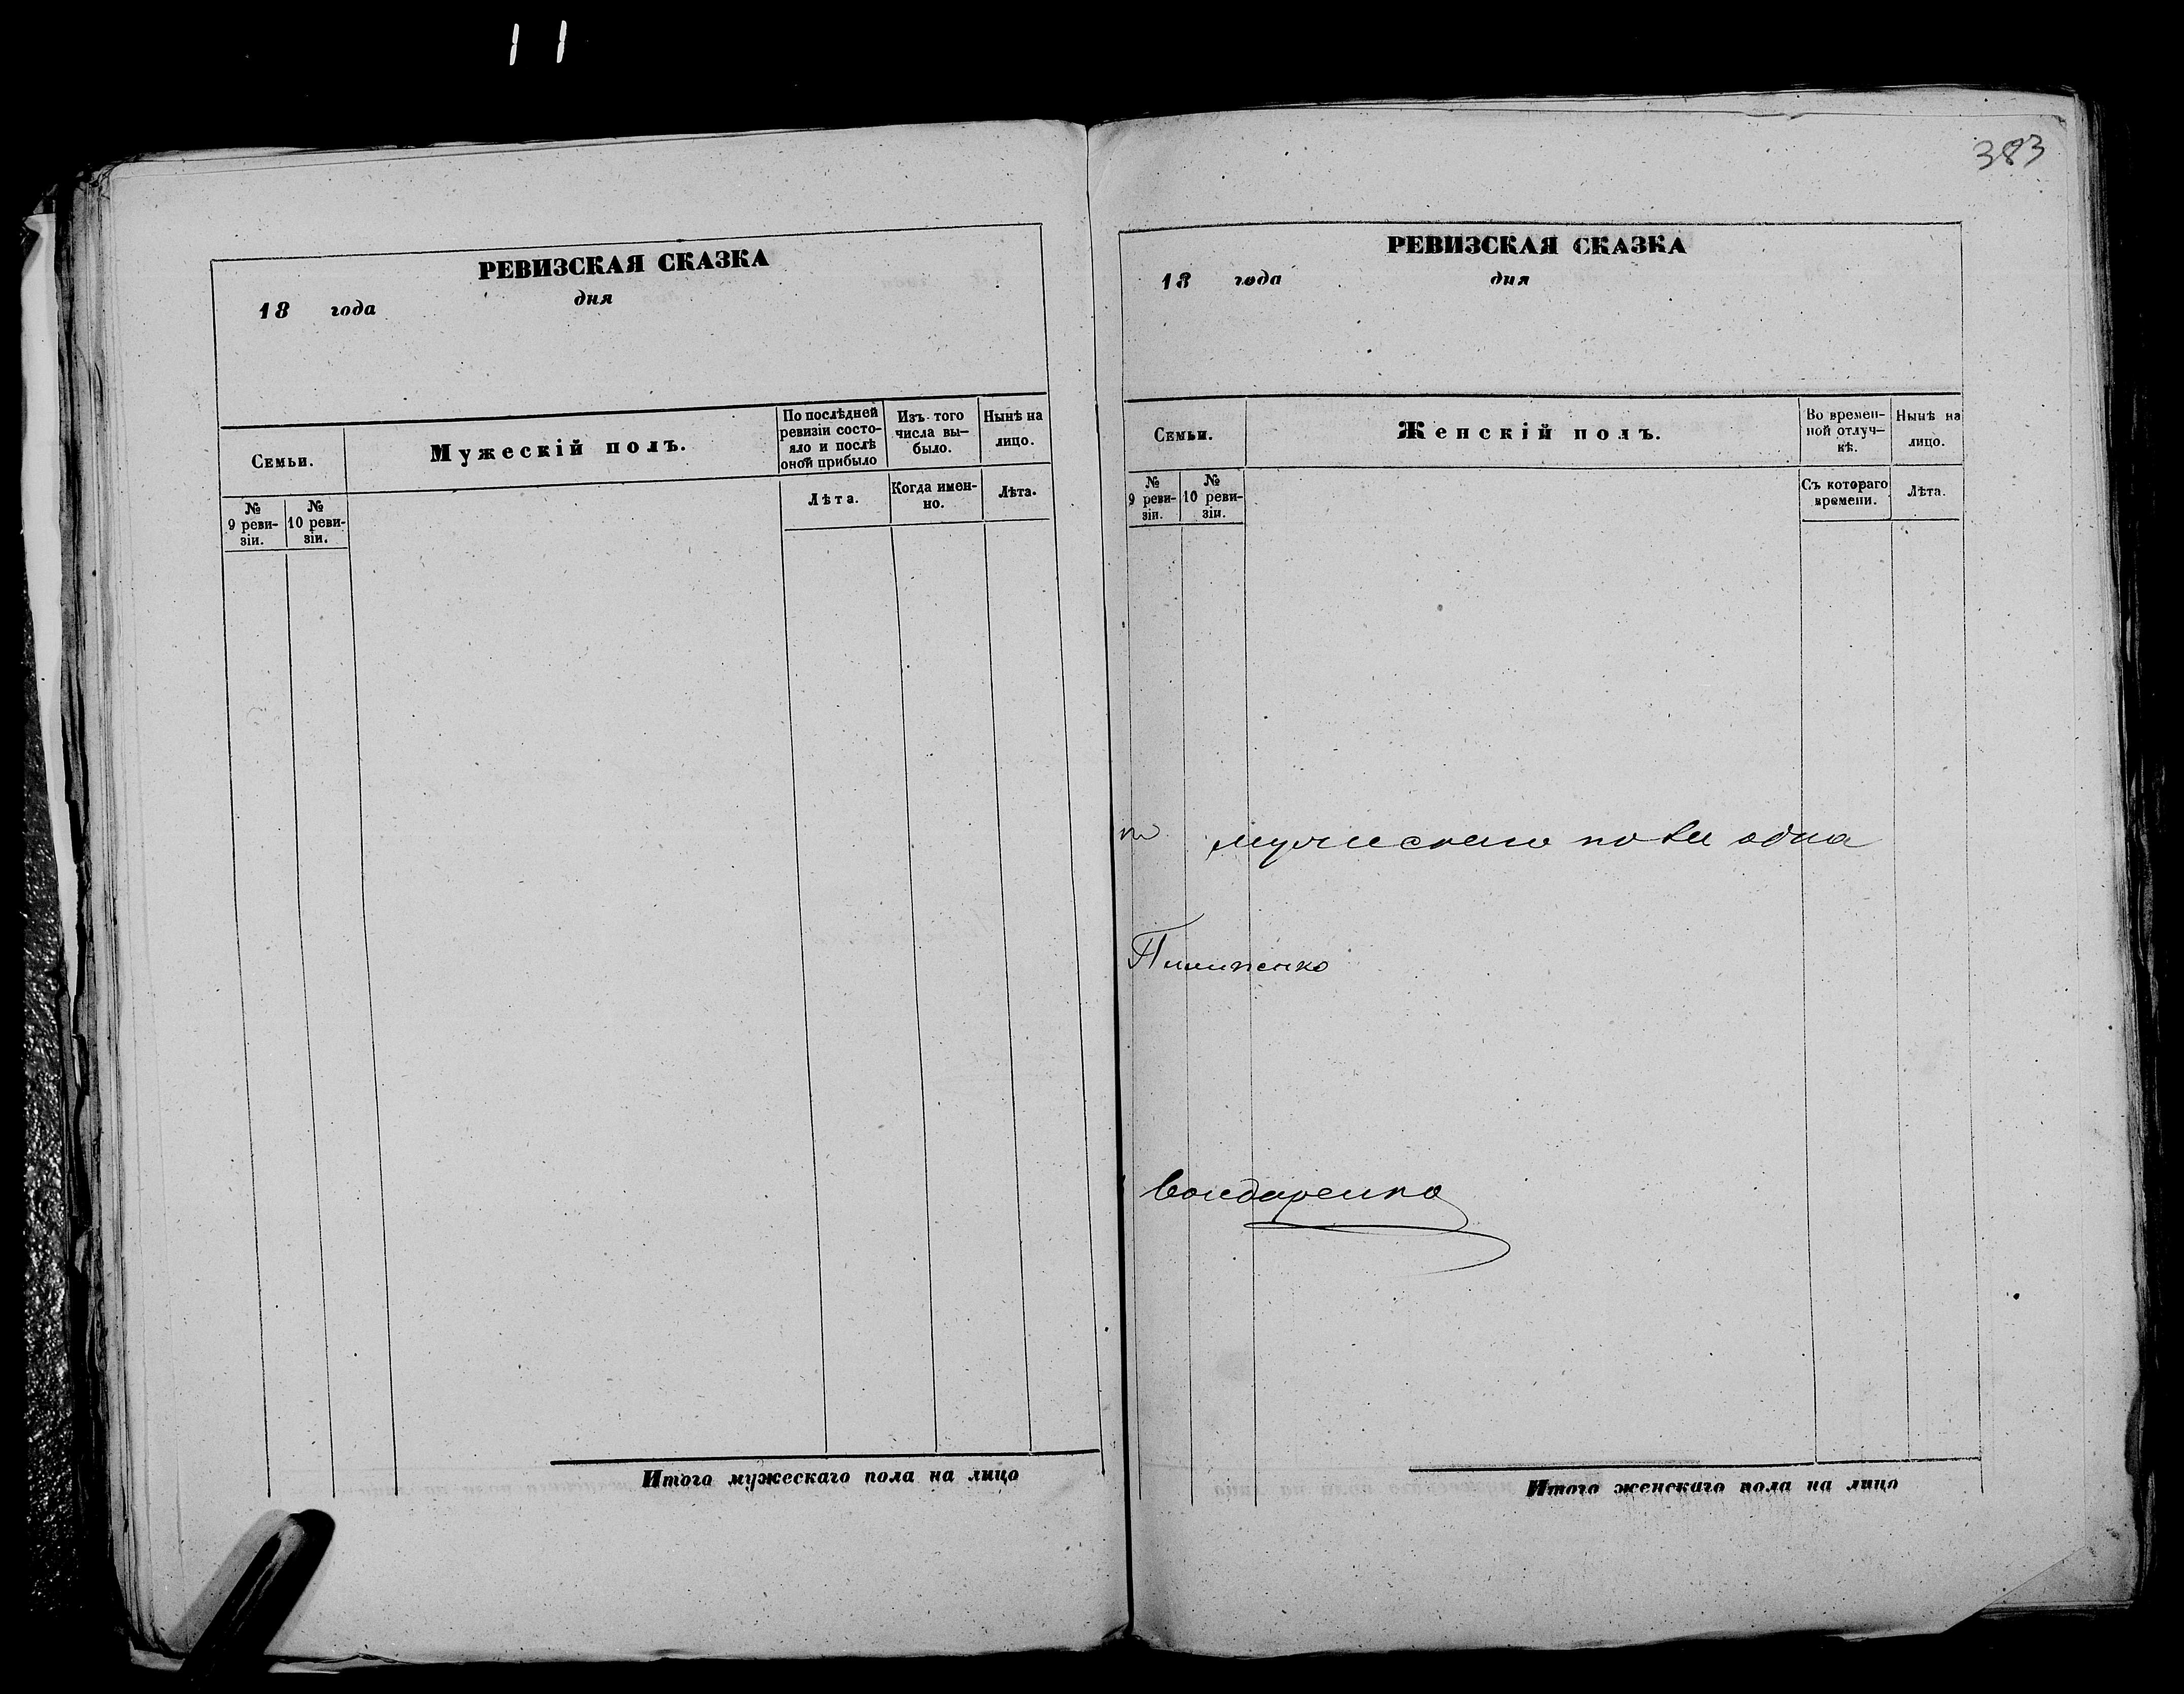 11
РЕВИЗСКАЯ СКАЗКА
18 года дня
Семьи.
Мужескій полъ.
По послѣдней ревизіи состо-
яло и послѣ
оной прибыло
Изъ того
числа вы-
было.
Нынѣ на
лицо.
№
9 реви-
зіи.
№
10 реви-
зіи.
Лѣта.
Когда имен-
но.
Лѣта.
Итого мужескаго пола на лицо
383
РЕВИЗСКАЯ СКАЗКА
18 года дня
Семьи.
Женскій полъ.
Во времен-
ной отлуч-
кѣ.
Нынѣ на
лицо.
№
9 реви-
зіи.
№
10 реви-
зіи.
Съ котораго
времени.
Лѣта.
мужескаго пола одна
Пилипенко
Бондаренко
Итого женскаго пола на лицо